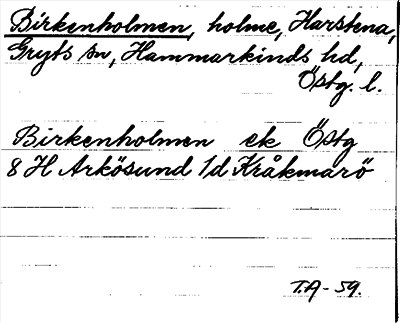 Birkenholmen, holme, Harstena,
Gryts sn, Hammarkinds hd,
Östg. l.
Birkenholmen ek Östg
8 H Arkösund 1d Kråkmarö
T.A - 59.